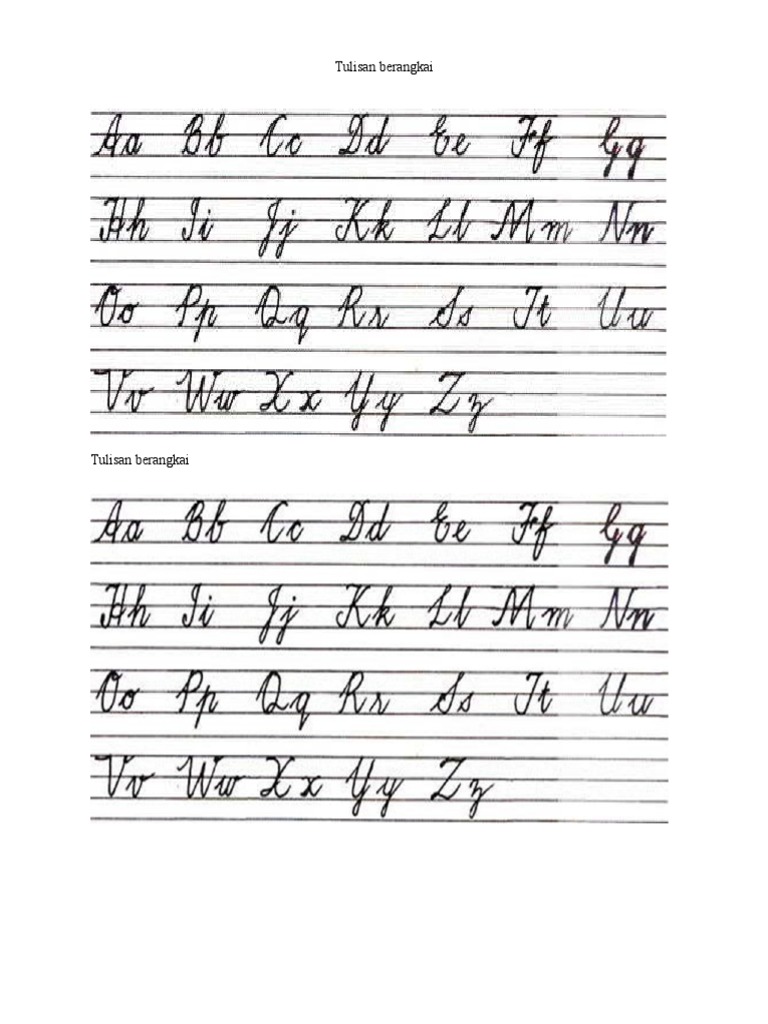 Tulisan berangkai
Aa Bb Cc Dd Ee Ff Gg
Hh Ii Jj Kk Ll Mm Nn
Oo Pp Qq Rr Ss Tt Uu
Vv Ww Xx Yy Zz
Tulisan berangkai
Aa Bb Cc Dd Ee Ff Gg
Hh Ii Jj Kk Ll Mm Nn
Oo Pp Qq Rr Ss Tt Uu
Vv Ww Xx Yy Zz